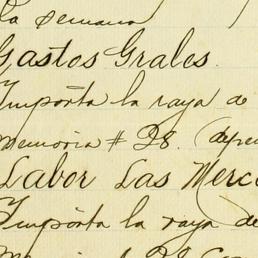 la semana
Gastos Grales.
Importa la raya de
Memoria # 28. (depen
Labor Las Merce
Importa la raya de
Memoria # 28